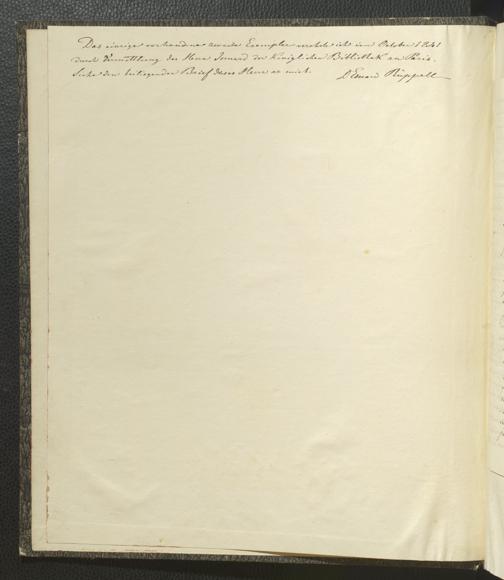 Das einzige vorhandene zweite Exemplar ich im October 1841
durch Vermittlung des Herrn Jomard der Königlichen Bibliothek zu Paris.
Siehe den beiliegenden Brief dieses Herrn an mich. Dr Eduard Rüppell